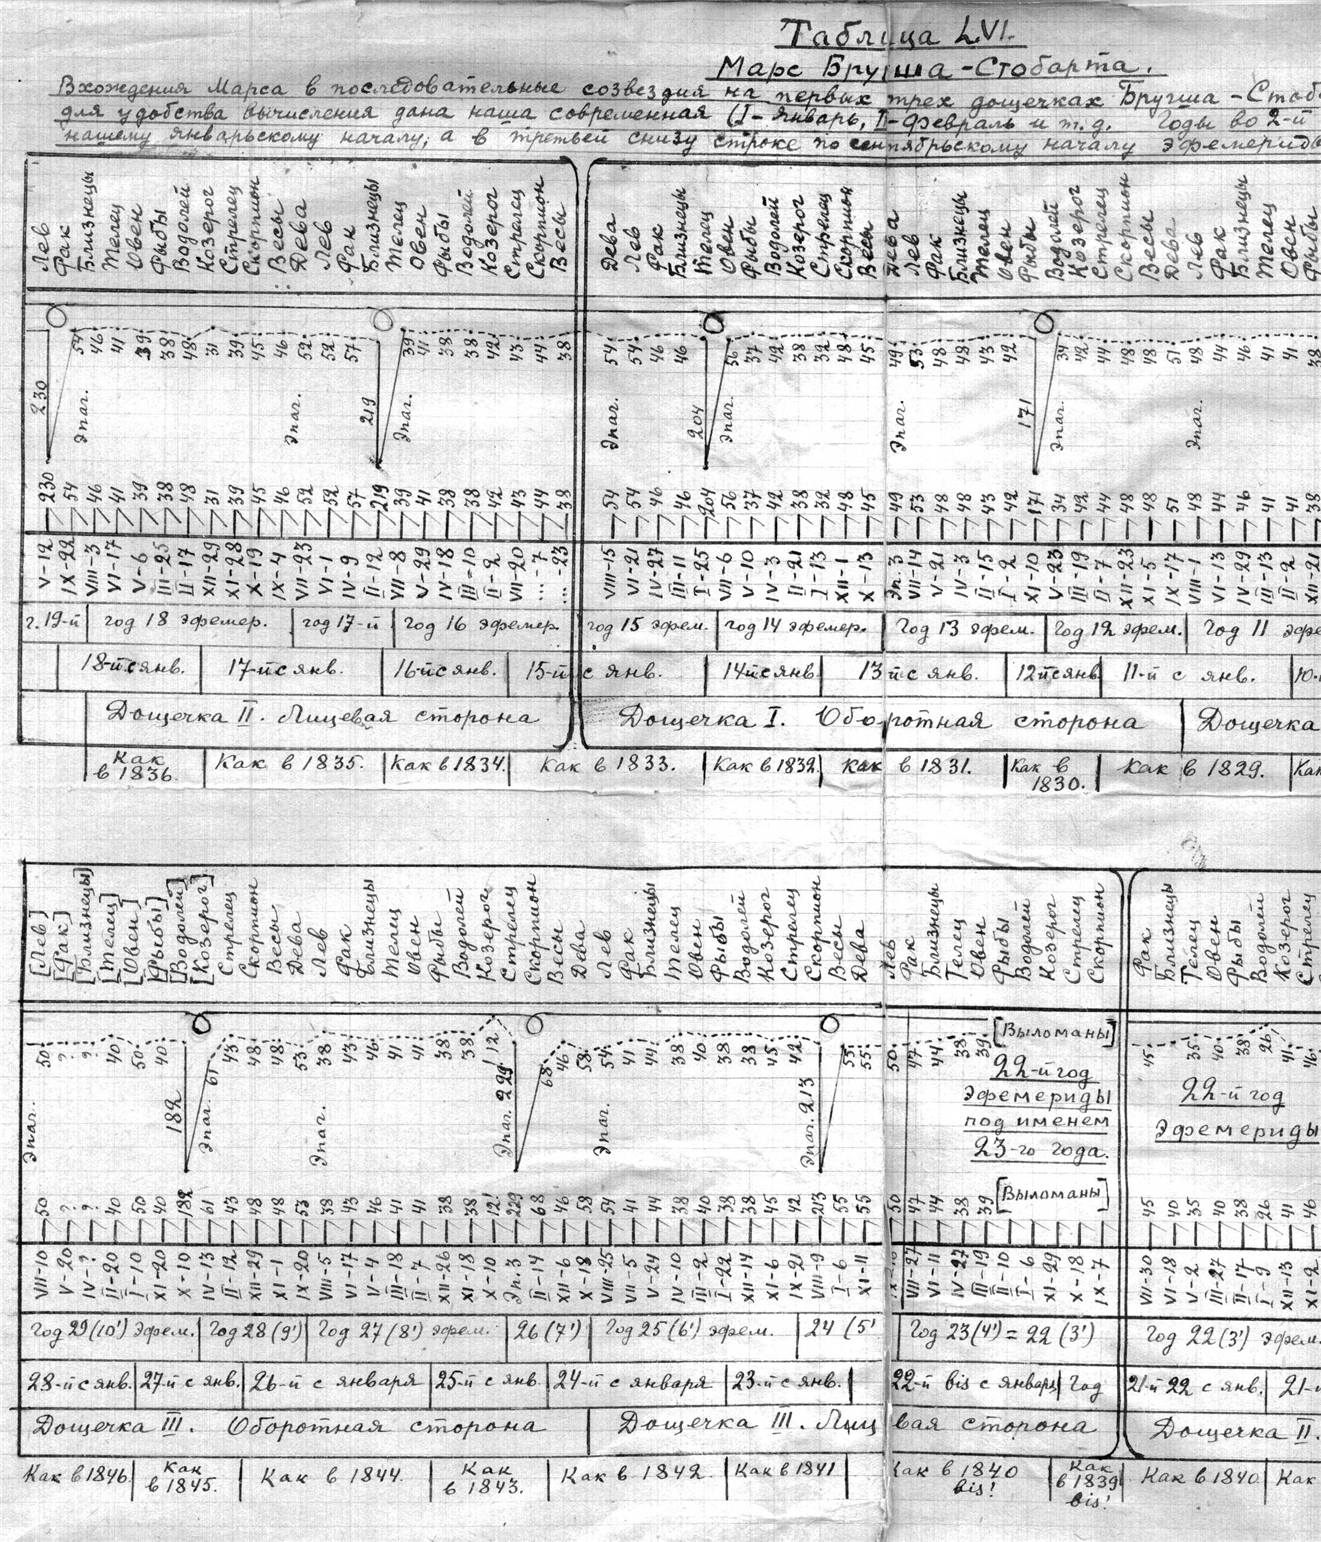 Таблица LVI.
Марс Бругша-Стобарта.
Вхождения Марса в последовательные созвездия на первых трех дощечках Бругша-Стоб
для удобства вычисления дана наша современная (I-Январь, II-февраль и т.д. Годы во 2-й
нашему январьскому началу, а в третьей снизу строке по сентябрьскому началу Эфемериды
Лев Рак Близнецы Телец Овен Рыбы Водолей Козерог Стрелец Скорпион Весы Дева Лев Рак Близнецы Телец Овен Рыбы Водолей Козерог Стрелец Скорпион Весы
Дева Лев Рак Близнецы Телец Овен Рыбы Водолей Козерог Стрелец Скорпион Весы Дева Лев Рак Близнецы Телец Овен Рыбы Водолей Козерог Стрелец Скорпион Весы Дева Лев Рак Близнецы Телец Овен Рыбы
54 46 41 39 38 48 31 39 45 46 52 52 57 39 41 38 38 42 43 44 38
54 54 46 46 56 37 42 38 32 48 45 49 53 48 48 43 42 34 42 44 48 48 51 48 44 46 41 41 38
230 Эпаг. Эпаг. 219 Эпаг. Эпаг. 204 Эпаг. Эпаг. 171 Эпаг. Эпаг.
230 54 46 41 39 38 48 31 39 45 46 52 52 57 219 39 41 38 38 42 43 44 38
54 54 46 46 204 56 37 42 38 32 48 45 49 53 48 48 43 42 171 34 42 44 48 48 51 48 44 46 41 41 38
V-12 IX-22 VIII-3 VI-17 V-6 III-25 II-17 XII-29 XI-28 X-19 IX-4 VII-23 VI-1 IV-9 II-12 VII-8 V-29 IV-18 III-10 II-2 VII-20 ...-7 ...-23
VIII-15 VII-21 IV-27 III-11 I-25 VII-6 V-10 IV-3 II-21 I-13 XII-1 X-13 Эп.3 VII-14 V-21 IV-3 II-15 I-2 XI-10 V-23 III-19 II-7 XII-23 XI-5 IX-17 VIII-1 VI-13 IV-29 III-13 II-2 XII-21
г.19-й год 18 эфемер. год 17-й год 16 эфемер. год 15 эфем. год 14 эфемер. Год 13 эфем. Год 12 эфем. Год 11 эфе
18-й с янв. 17-й с янв. 16-й с янв. 15-й с янв. 14й с янв. 13 й с янв. 12й с янв. 11-й с янв. 10-
Дощечка II. Лицевая сторона Дощечка I. Оборотная сторона Дощечка
Как в 1836. Как в 1835. Как в 1834. Как в 1833. Как в 1832. Как в 1831. Как в 1830. Как в 1829. Как
[Лев] [Рак] [Близнецы] [Телец] [Овен] [Рыбы] [Водолей] [Козерог] Стрелец Скорпион Весы Дева Лев Рак Близнецы Телец Овен Рыбы Водолей Козерог Стрелец Скорпион Весы Дева Лев Рак Близнецы Телец Овен Рыбы Водолей Козерог Стрелец Скорпион Весы Дева Лев Рак Близнецы Телец Овен Рыбы Водолей Козерог Стрелец Скорпион
Рак Близнецы Телец Овен Рыбы Водолей Козерог Стрелец
50 ? ? 40 50 40 61 43 48 48 53 38 43 46 41 41 38 38 12 68 46 58 54 41 44 38 40 38 38 45 42 55 55 50 47 44 38 39 [Выломаны]
45 35 40 38 26 41 46
Эпаг. 182 Эпаг. Эпаг. Эпаг. 229 Эпаг. Эпаг. 213
22-й год
эфемериды
под именем
23-го года.
22-й год
Эфемериды
50 ? ? ? 40 50 40 182 61 43 48 48 53 38 43 46 41 41 38 38 12! 229 68 46 58 54 41 44 38 40 38 38 45 42 213 55 55 50 47 44 38 39 [Выломаны]
45 40 35 40 38 26 41 46
VII-10 V-20 IV-? II-20 I-10 XI-20 X-10 IV-13 II-12 XII-29 XI-1 IX-20 VIII-5 VI-17 V-4 III-18 II-7 XII-26 XI-18 X-10 Эп.3 II-14 XII-6 X-18 VIII-25 VII-5 V-24 IV-10 III-2 I-22 XII-14 XI-6 IX-21 VIII-9 I-6 XI-11 VIII-27 VI-11 IV-27 III-19 II-10 I-6 XI-29 X-18 IX-7
VII-30 VI-18 V-2 III-27 II-17 I-9 XII-13 XI-2
Год 29 (10') эфем. Год 28 (9') Год 27 (8') эфем. 26 (7') Год 25 (6') эфем. 24 (5' Год 23 (4') = 22 (3') Год 22 (3') эфем.
28-й с янв. 27-й с янв. 26-й с января 25-й с янв. 24-й с января 23-й с янв. 22-й bis с января Год 21-й 22 с янв. 21-й
Дощечка III. Оборотная сторона Дощечка III. Лиц вая сторона Дощечка II.
Как в 1846. Как в 1845. Как в 1844. Как в 1843. Как в 1842. Как в 1841 Как в 1840 bis! Как в 1839 bis! Как в 1840. Как